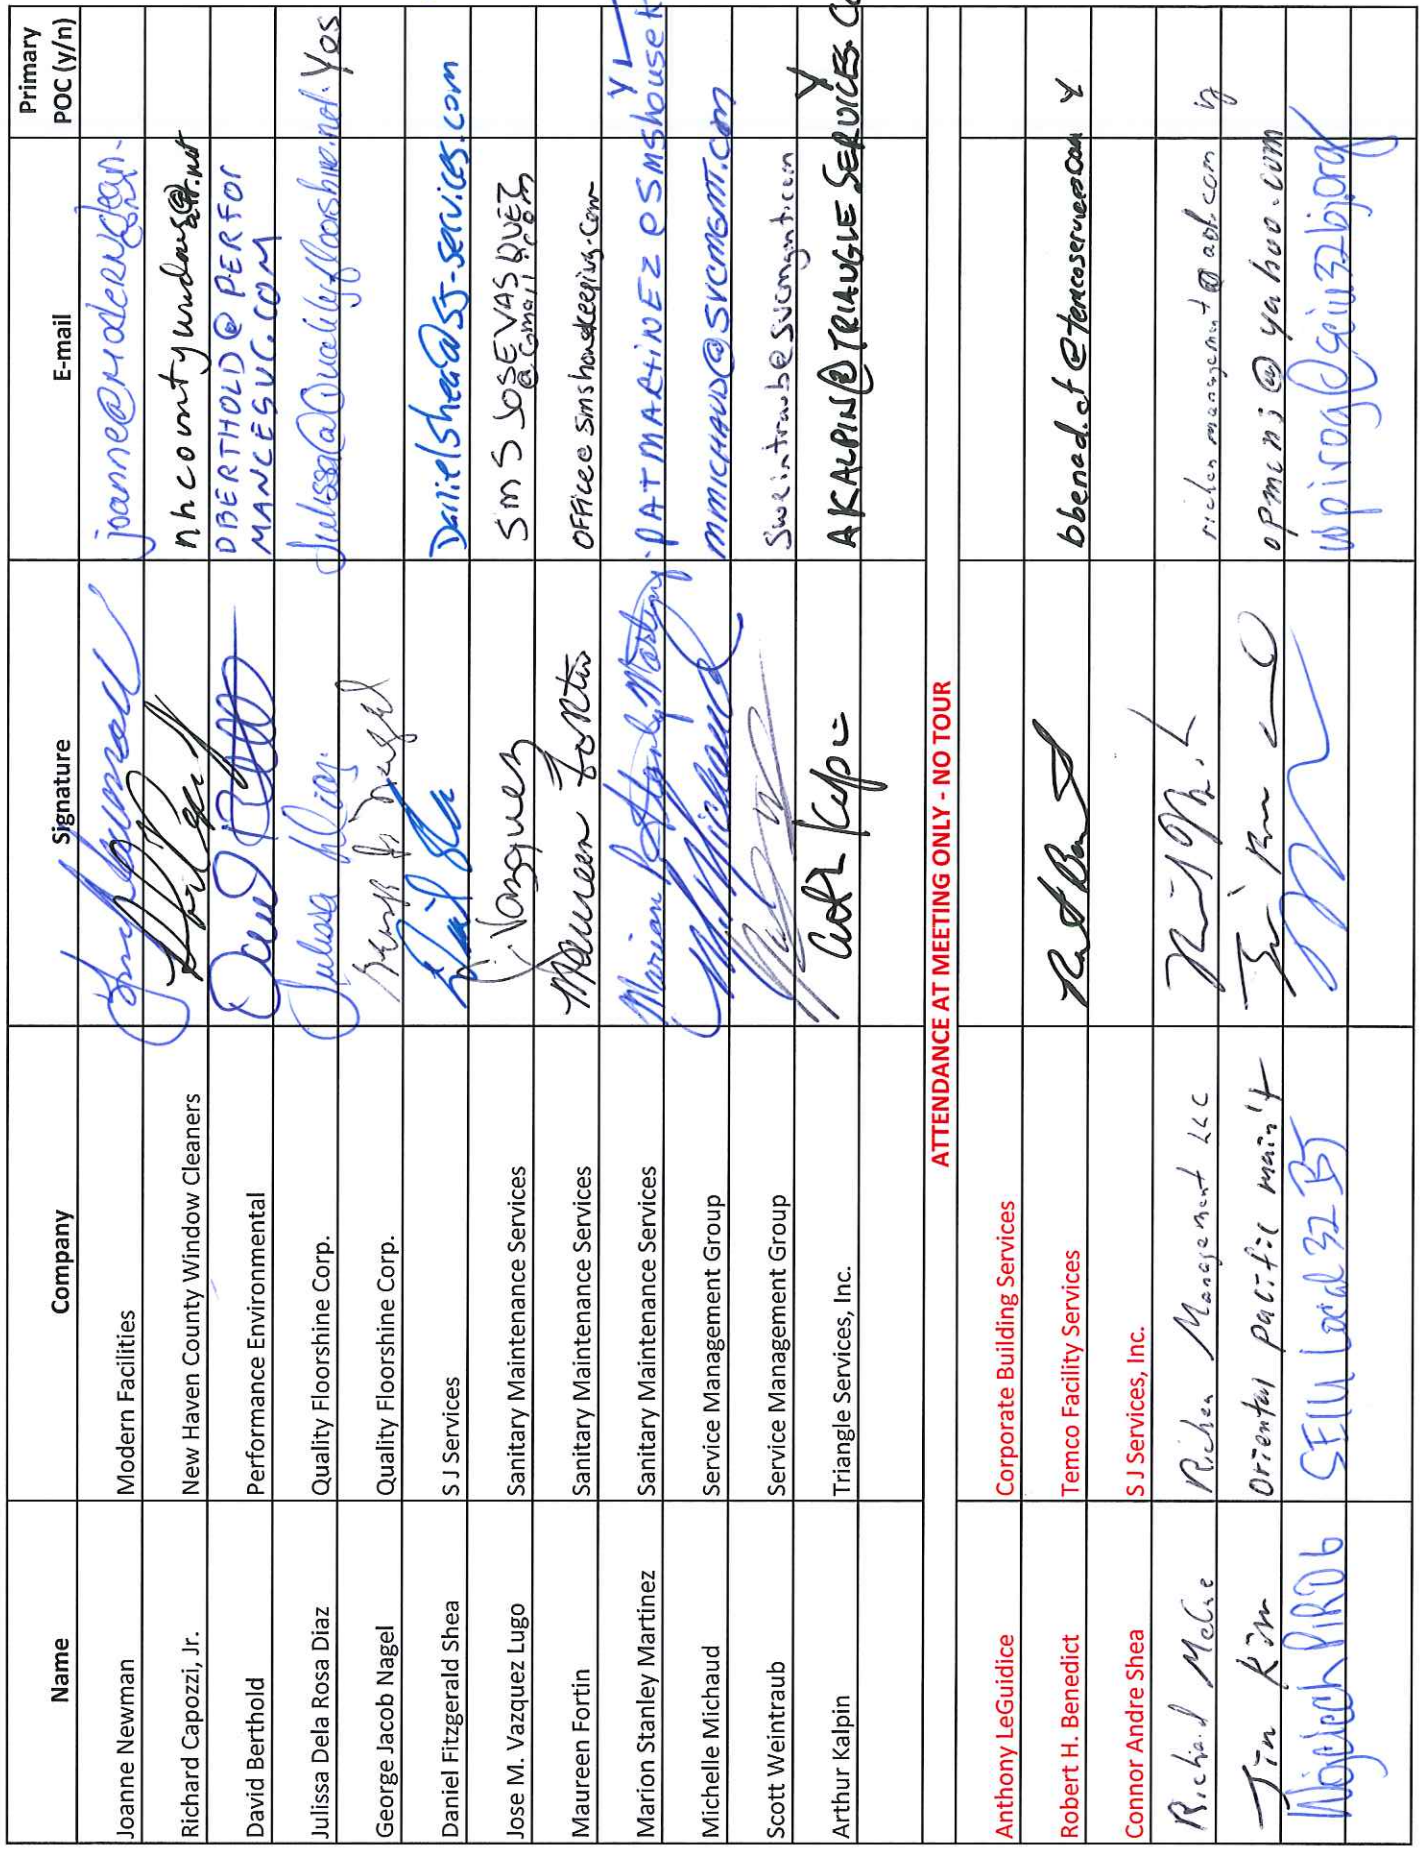 Name Company Signature E-mail Primary POC (y/n)
Joanne Newman Modern Facilities
Richard Capozzi, Jr. New Haven County Window Cleaners
David Berthold Performance Environmental DBERTHOLD@PERFOR
MANCESVC.COM
Julissa Dela Rosa Diaz Quality Floorshine Corp. Julissa Diaz Julissa@Qualityfloorshine.net Yes
George Jacob Nagel Quality Floorshine Corp.
Daniel Fitzgerald Shea S J Services Daniel Shea Danielshea@SJ-services.com
Jose M. Vazquez Lugo Sanitary Maintenance Services J. Vazquez SMS JOSE VASQUEZ
@Gmail.com
Maureen Fortin Sanitary Maintenance Services Maureen Fortin
Marion Stanley Martinez Sanitary Maintenance Services Marion Stanley Martinez Y
Michelle Michaud Service Management Group M. Michaud mmichaud@SVCMGMT.com
Scott Weintraub Service Management Group Sweintraub@svcmgmt.com
Arthur Kalpin Triangle Services, Inc. AKALPIN@TRIANGLE SERVICES.CO Y
ATTENDANCE AT MEETING ONLY - NO TOUR
Anthony LeGuidice Corporate Building Services
Robert H. Benedict Temco Facility Services bbenedict@temcoservices.com Y
Connor Andre Shea S J Services, Inc.
Richard Richea Management LLC
Jin Kim Oriental pacific main't Jin Kim opmcnj@yahoo.com
Wojciech PIROG SEIU Local 32 BJ wpirog@seiu32bj.org